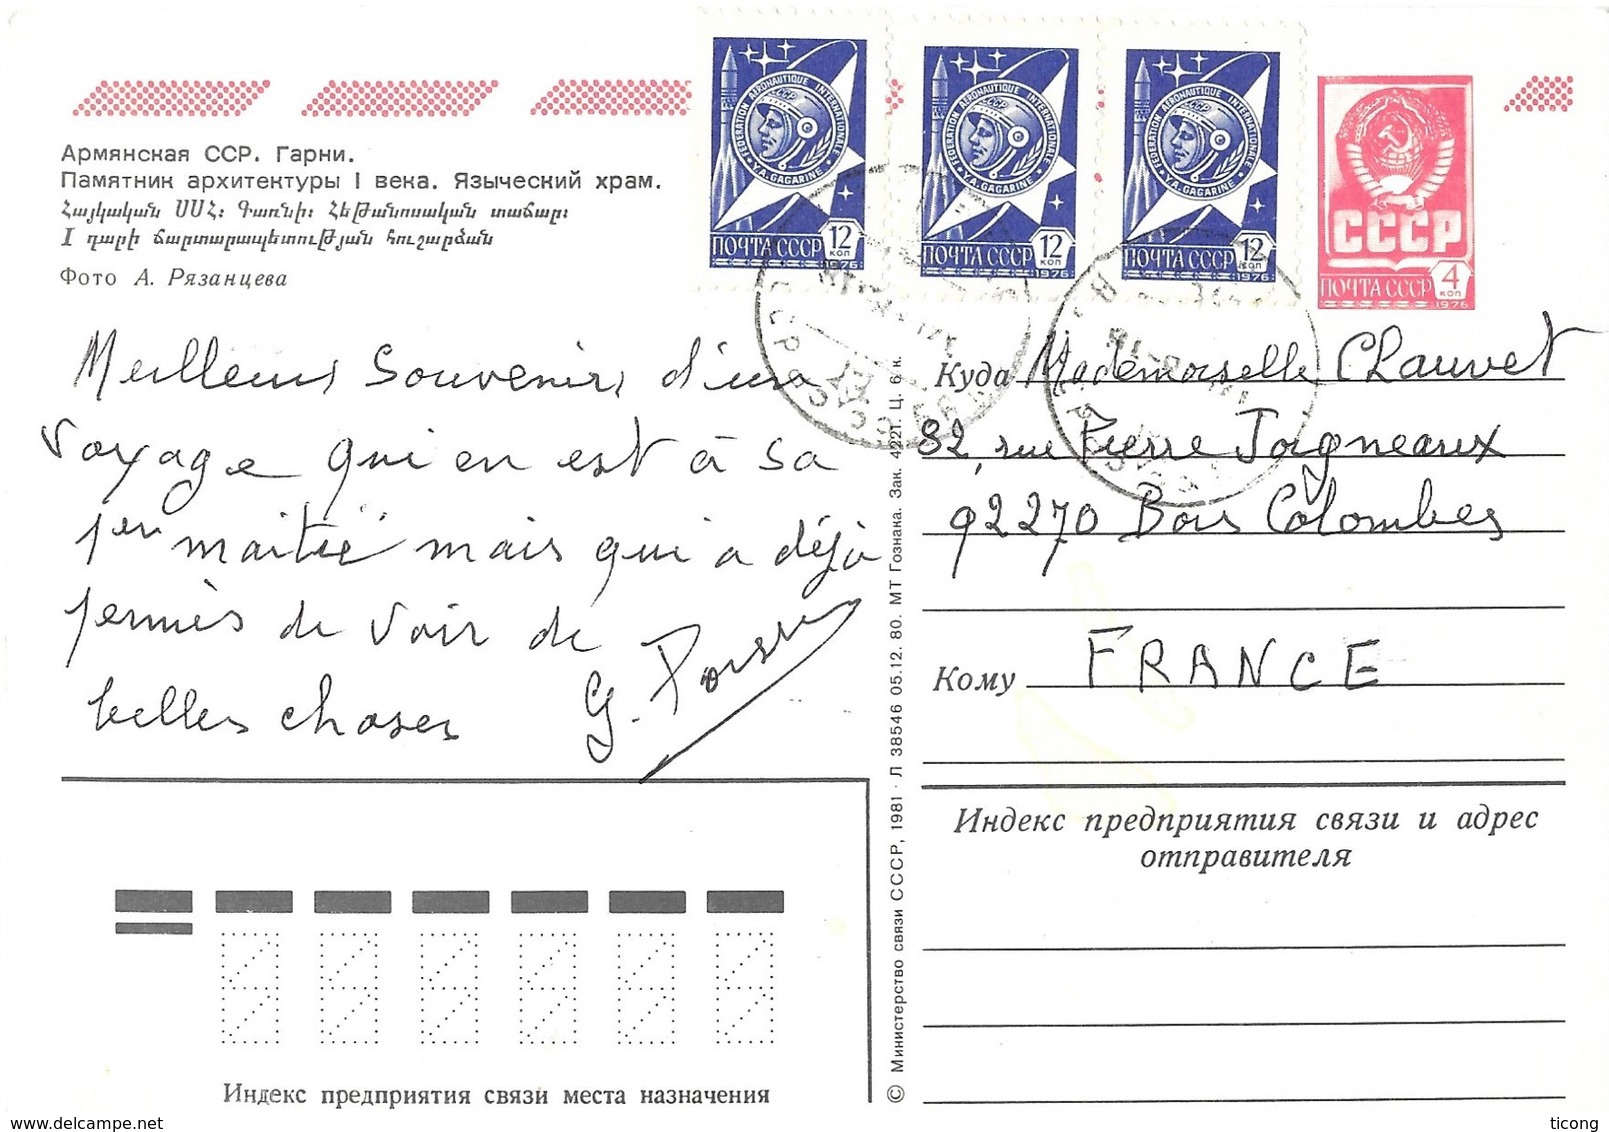 Армянская ССР. Гарни.
Памятник архитектуры I века. Языческий храм.
Հայկական ՍՍՀ։ Գառնի։ Հեթանոսական տաճար։
I դարի ճարտարապետության հուշարձան
Фото А. Рязанцева
FEDERATION AERONAUTIQUE INTERNATIONALE
СССР
Y.A. GAGARINE
ПОЧТА СССР 12 КОП
1976
FEDERATION AERONAUTIQUE INTERNATIONALE
СССР
Y.A. GAGARINE
ПОЧТА СССР 12 КОП
1976
FEDERATION AERONAUTIQUE INTERNATIONALE
СССР
Y.A. GAGARINE
ПОЧТА СССР 12 КОП
1976
СССР
ПОЧТА СССР 4 КОП
1976
Meilleurs Souvenirs d'un
voyage qui en est à sa
1ère moitié mais qui a déjà
permis de voir de
belles choses
G.
Куда Mademoiselle Chauvet
82, rue Pierre Joigneaux
92270 Bois Colombes
Кому FRANCE
Индекс предприятия связи и адрес
отправителя
© Министерство связи СССР, 1981 · Л 38546 05.12. 80. МТ Гознака. Зак. 4221. Ц. 6 к.
Индекс предприятия связи места назначения
delcampe.net
ticong